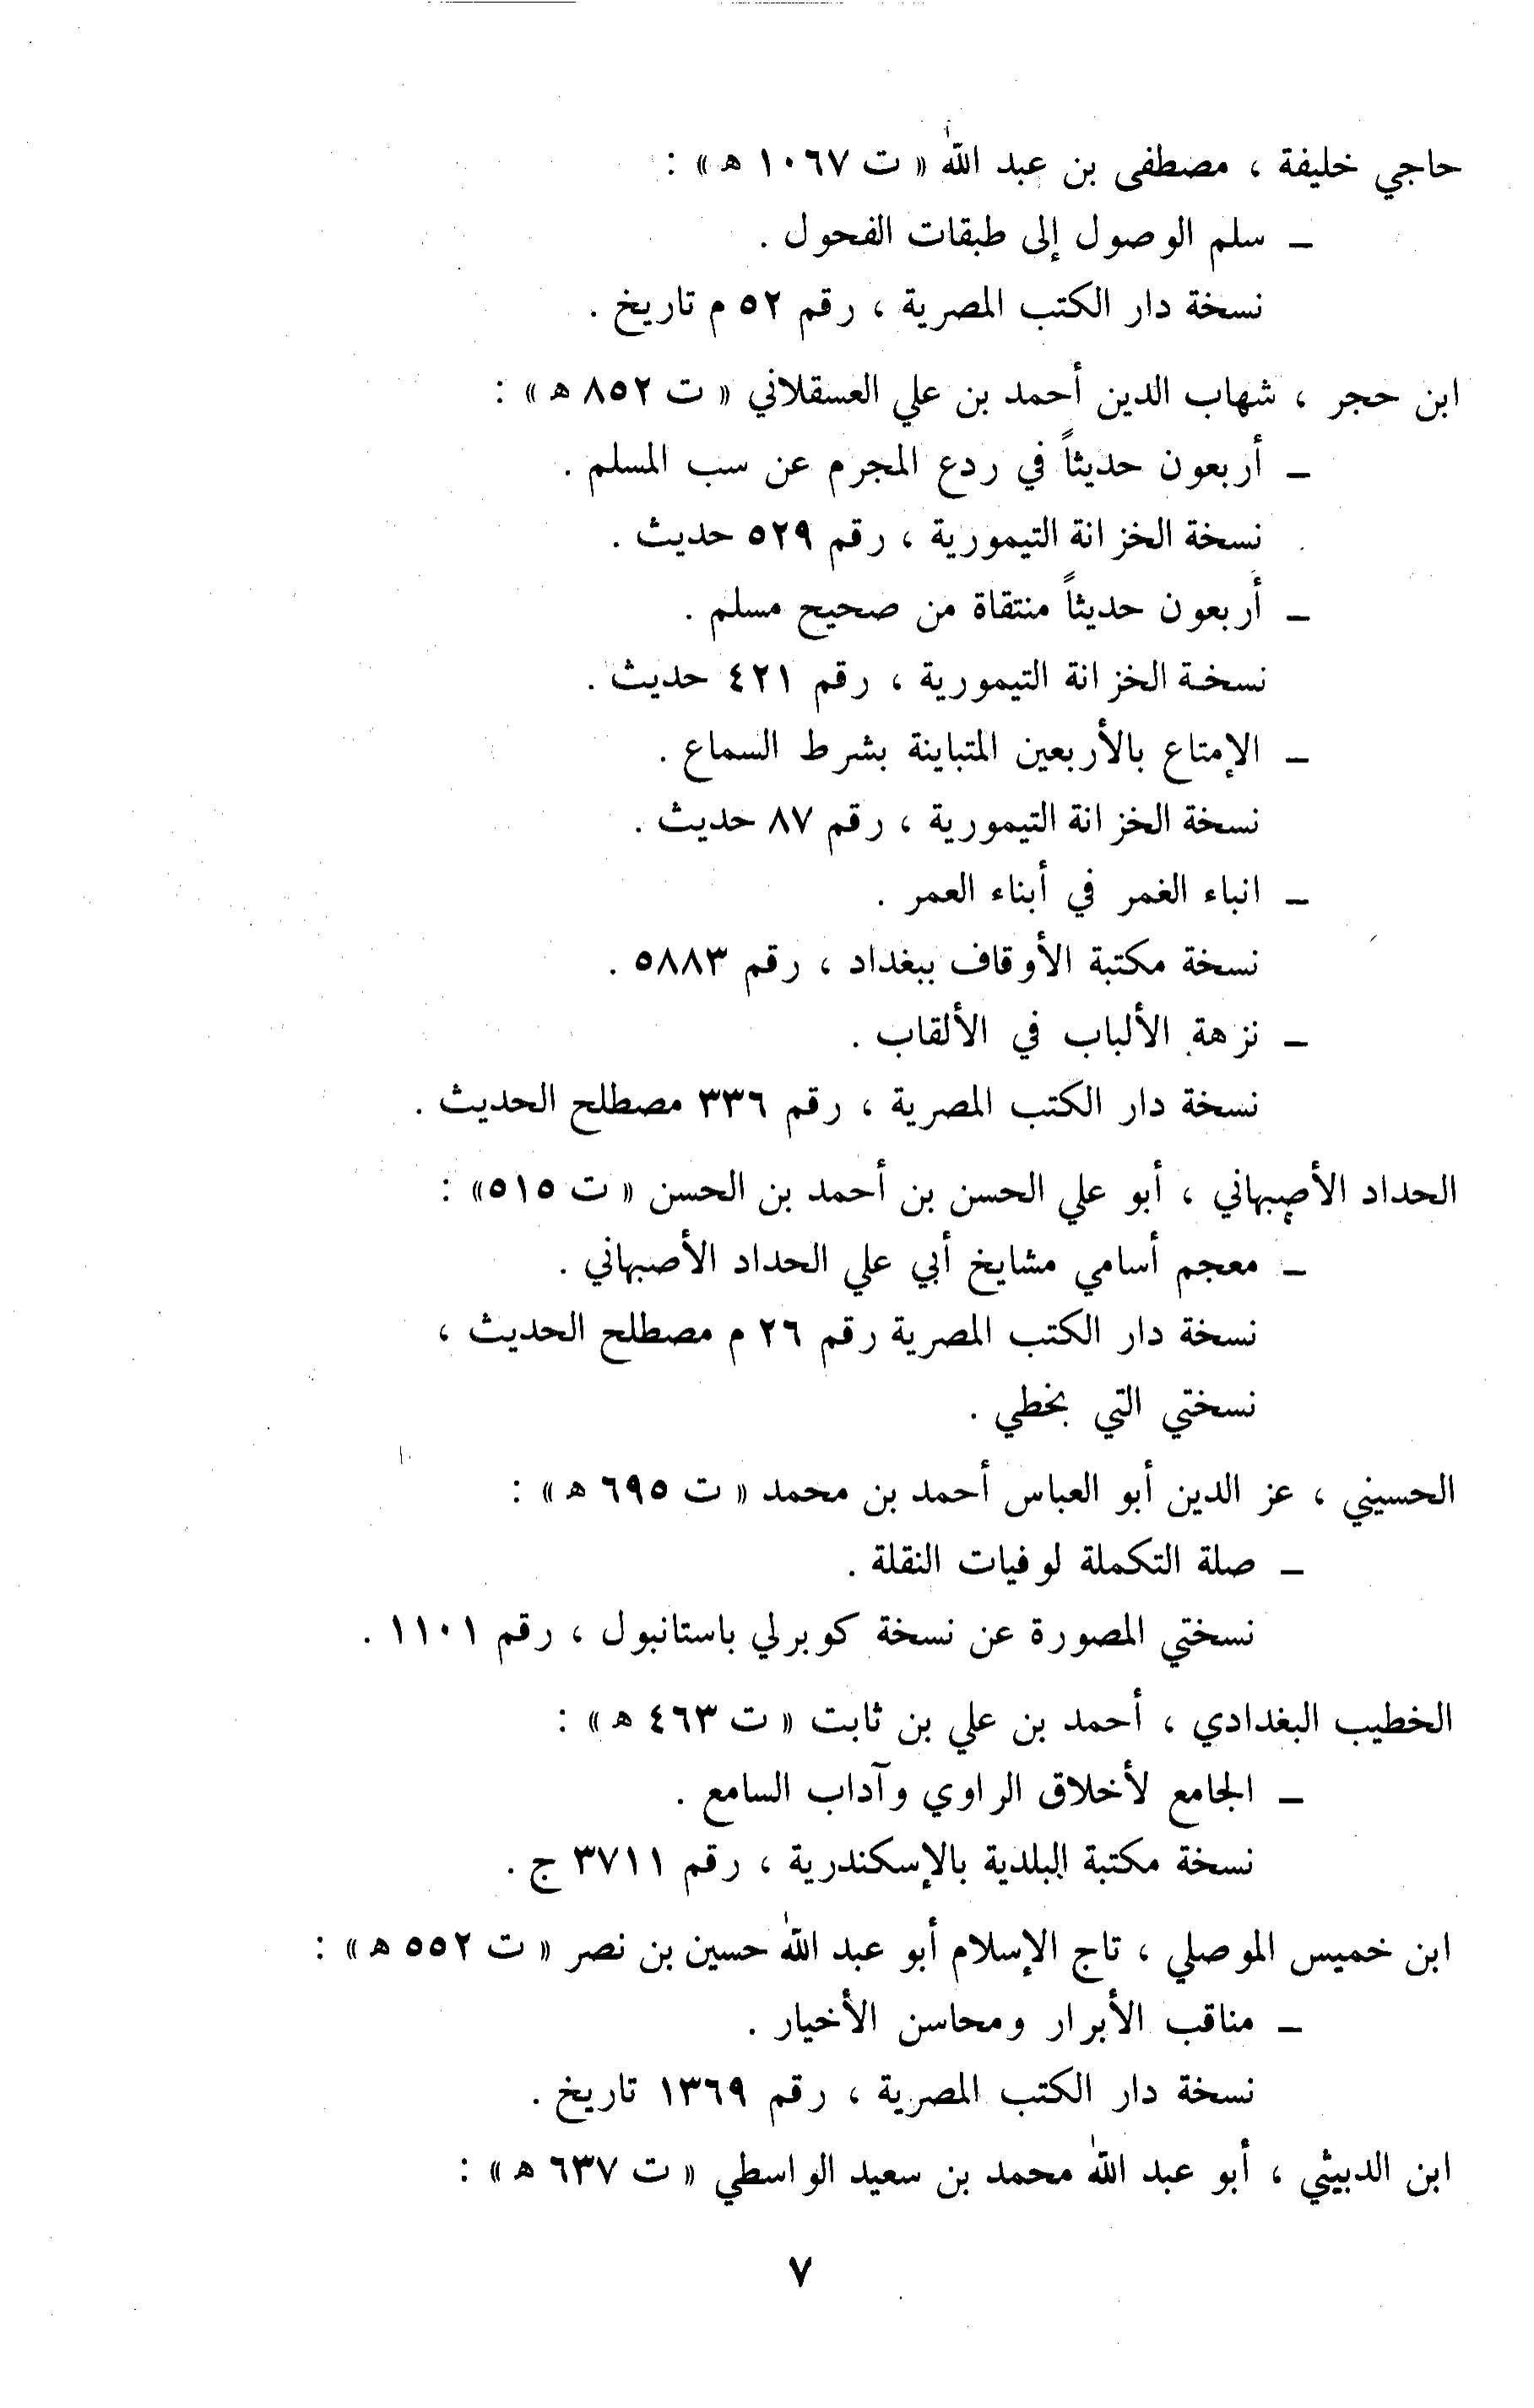 حاجي خليفة ، مصطفى بن عبد الله « ت ١٠٦٧ ه » :
ــ سلم الوصول إلى طبقات الفحول .
نسخة دار الكتب المصرية ، رقم ٥٢ م تاريخ .
ابن حجر ، شهاب الدين أحمد بن علي العسقلاني « ت ٨٥٢ ه » :
ــ أربعون حديثاً في ردع المجرم عن سب المسلم .
نسخة الخزانة التيمورية ، رقم ٥٢٩ حديث .
ــ أربعون حديثاً منتقاة من صحيح مسلم .
نسخة الخزانة التيمورية ، رقم ٤٢١ حديث .
ــ الإمتاع بالأربعين المتباينة بشرط السماع .
نسخة الخزانة التيمورية ، رقم ٨٧ حديث .
ــ انباء الغمر في أبناء العمر .
نسخة مكتبة الأوقاف ببغداد ، رقم ٥٨٨٣ .
ــ نزهة الألباب في الألقاب .
نسخة دار الكتب المصرية ، رقم ٣٣٦ مصطلح الحديث .
الحداد الأصبهاني ، أبو علي الحسن بن أحمد بن الحسن « ت ٥١٥» :
ــ معجم أسامي مشايخ أبي علي الحداد الأصبهاني .
نسخة دار الكتب المصرية رقم ٢٦ م مصطلح الحديث ،
نسختي التي بخطي .
الحسيني ، عز الدين أبو العباس أحمد بن محمد « ت ٦٩٥ ه » :
ــ صلة التكملة لوفيات النقلة .
نسختي المصورة عن نسخة كوبرلي باستانبول ، رقم ١١٠١ .
الخطيب البغدادي ، أحمد بن علي بن ثابت « ت ٤٦٣ ه » :
ــ الجامع لأخلاق الراوي وآداب السامع .
نسخة مكتبة البلدية بالإسكندرية ، رقم ٣٧١١ ج .
ابن خميس الموصلي ، تاج الإسلام أبو عبد الله حسين بن نصر « ت ٥٥٢ ه » :
ــ مناقب الأبرار ومحاسن الأخيار .
نسخة دار الكتب المصرية ، رقم ١٣٦٩ تاريخ .
ابن الدبيثي ، أبو عبد الله محمد بن سعيد الواسطي « ت ٦٣٧ ه » :
٧